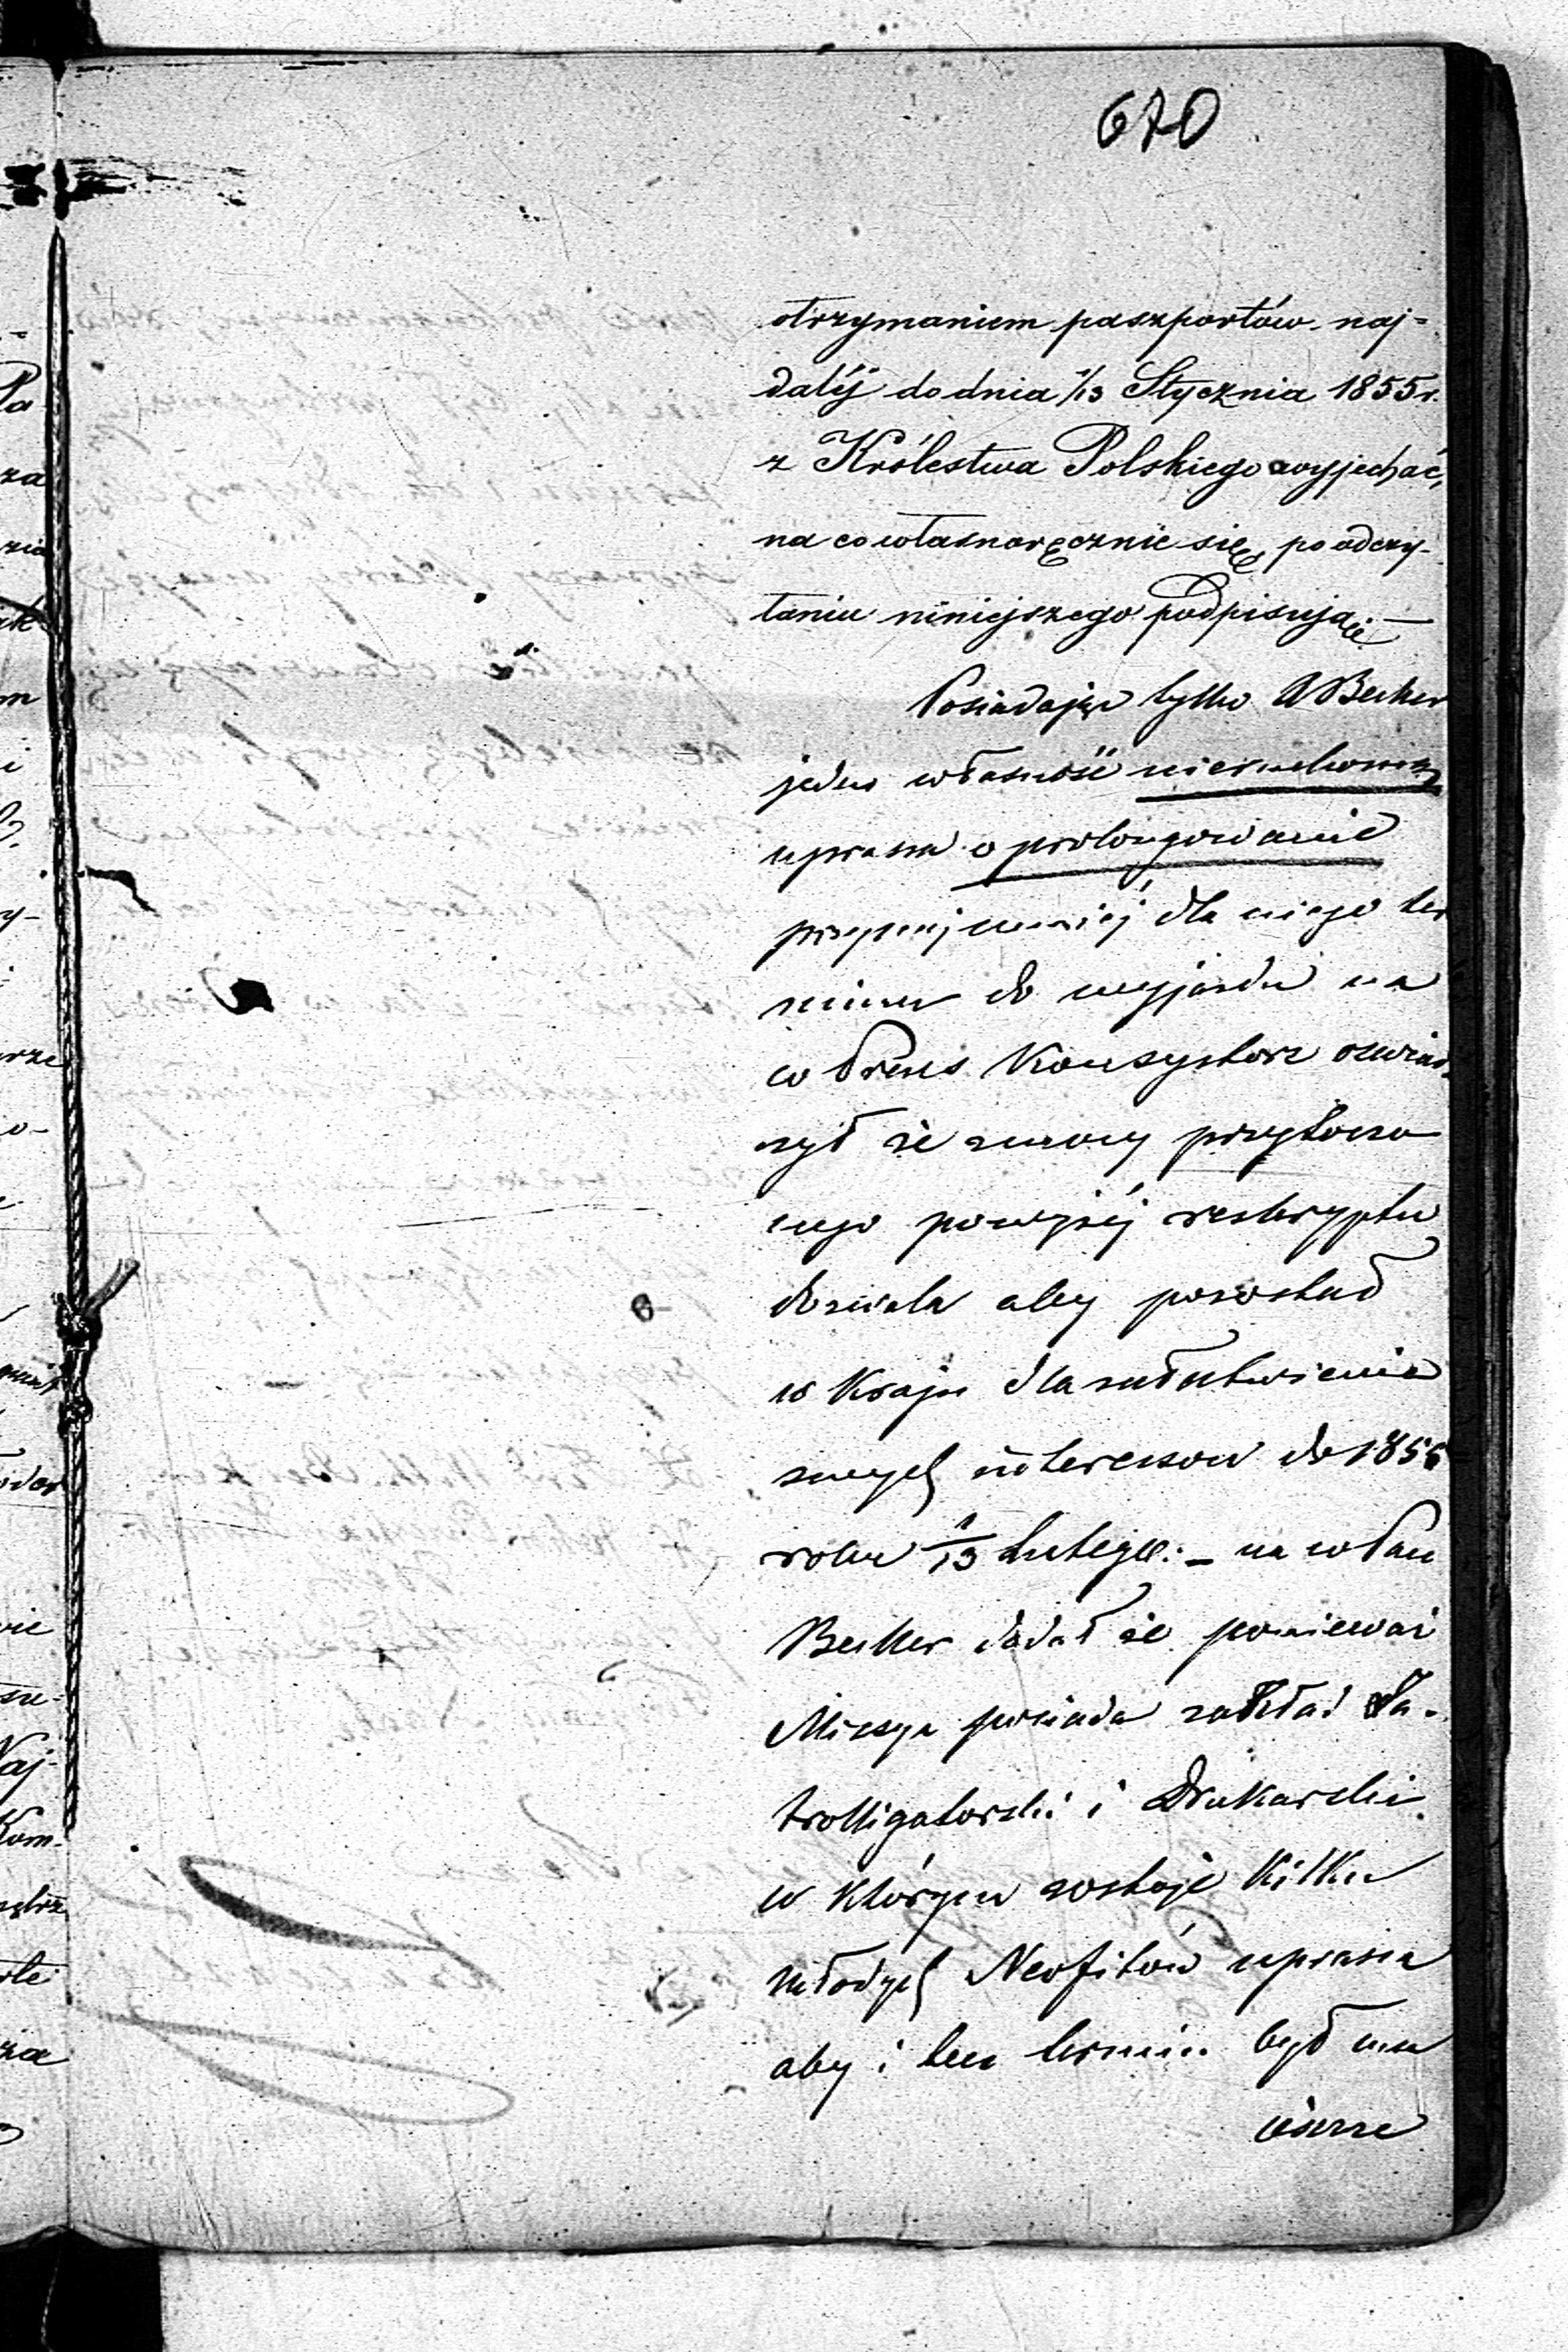 670
otrzymaniem paszportów naj=
daléj do dnia 1/13 Stycznia 1855 r.
z Królestwa Polskiego wyjechać,
na co własnoręcznie się, po odczy-
taniu niniejszego podpisują. —
Posiadając tylko Becker
jedną własność nieruchomą
uprasza o prolongowanie
przynajmniéj dla niego ter
minu do wyjazdu na
co Prezes Konsystorz oświad
czył że zmowy przytoczo
nego powyżéj reskryptu
dozwala aby pozostał
w Kraju dla załatwienia
swych interessow do 1855
roku 1/13 Lutego: — na co Pan
Becker dodał że ponieważ
Missya posiada zakład In-
trolligatorski i Drukarski
w którym zostaje kilku
młodych Neofitów uprasza
aby i ten termin był mu